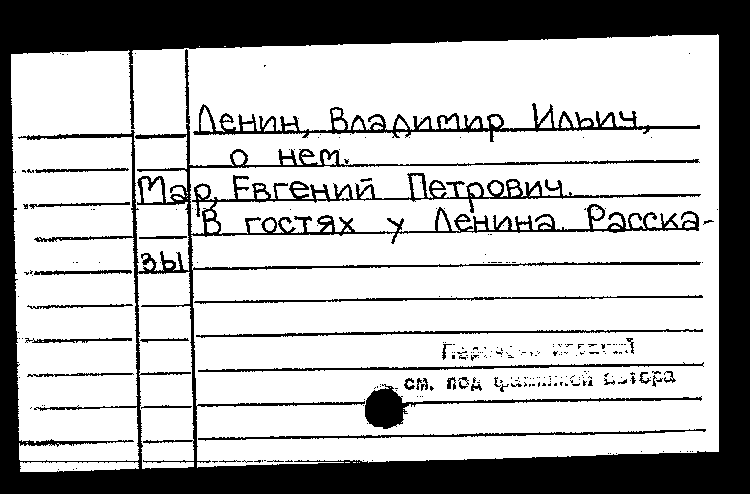 Ленин, Владимир Ильич,
о нем.
Мар, Евгений Петрович.
В гостях у Ленина. Расска-
зы
Перечень изданий
см. под фамилией автора